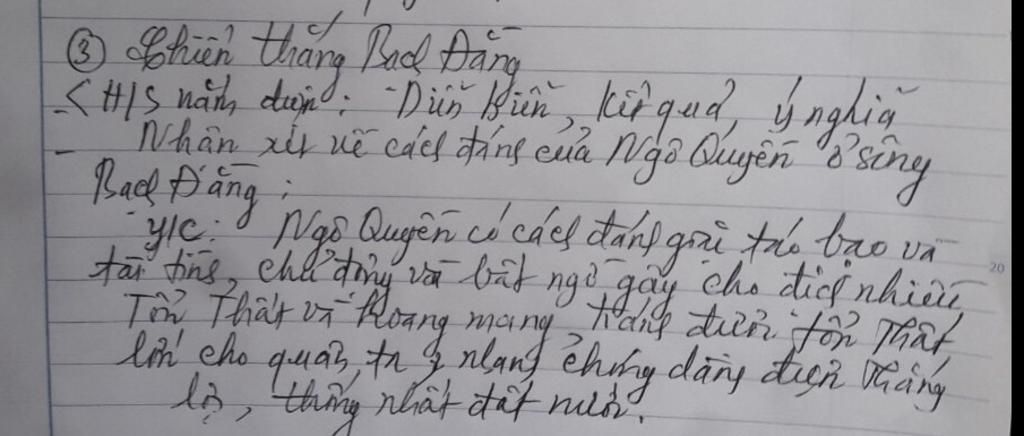 ③ Chiến thắng Bạch Đằng
< H/S nắm được: - Diễn biến, kết quả, ý nghĩa
- Nhận xét về cách đánh của Ngô Quyền ở sông
Bạch Đằng:
Y/C: Ngô Quyền có cách đánh giặc táo bạo và
tài tình, chủ động và bất ngờ gây cho địch nhiều
Tổn Thất và hoang mang tránh được tổn Thất
lớn cho quân ta nhanh chóng dành được thắng
lợi, thống nhất đất nước.